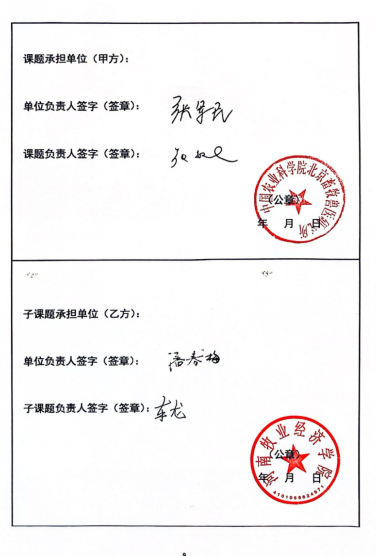 课题承担单位（甲方）：
单位负责人签字（签章）： 张军民
课题负责人签字（签章）：
中国农业科学院北京畜牧兽医研究所
（公章）
年 月 日
子课题承担单位（乙方）：
单位负责人签字（签章）： 潘春梅
子课题负责人签字（签章）： 车龙
河南牧业经济学院
（公章）
年 月 日